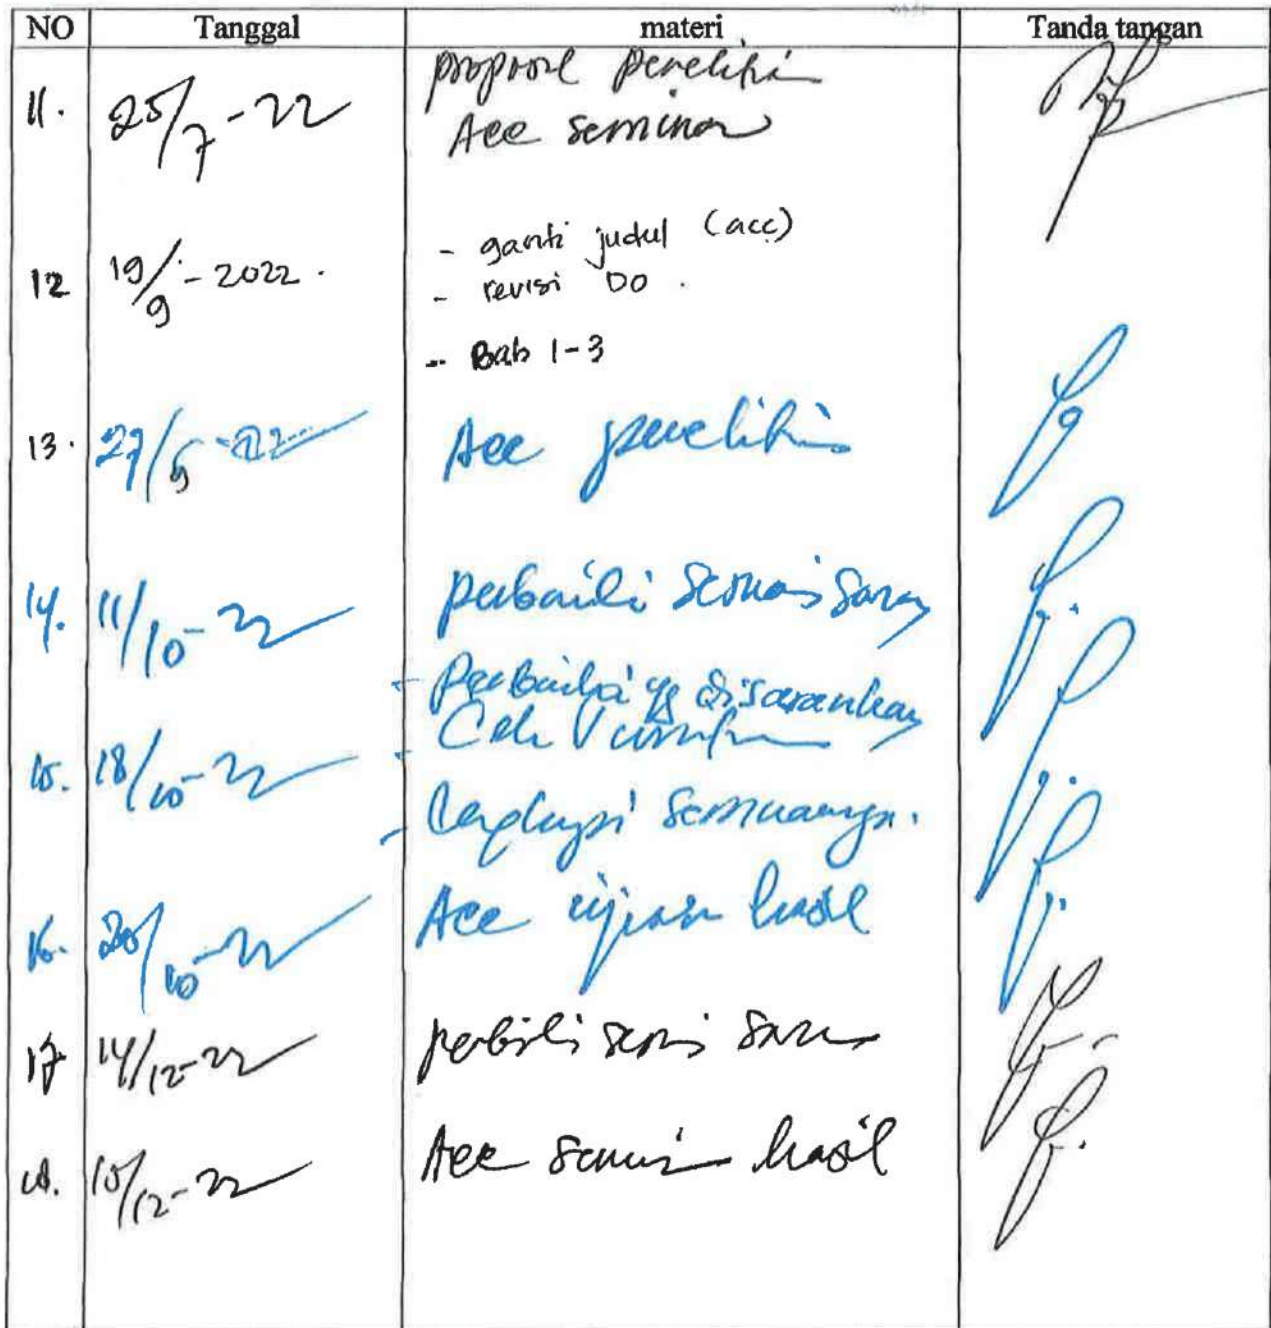 NO Tanggal materi Tanda tangan
proposal penelitian
11. 25/7-22
Acc seminar
- ganti judul (acc)
12 19/9-2022.
- revisi DO.
- Bab 1-3
13. 27/9-22 Acc penelitian
14. 11/10-22 perbaiki sesuai saran
- Perbaiki yg disarankan
- Cek
15. 18/10-22
- Lengkapi semuanya.
16. 20/10-22 Acc ujian hasil
17 14/12-22 perbaiki sesuai saran
18. 15/12-22 Acc hasil